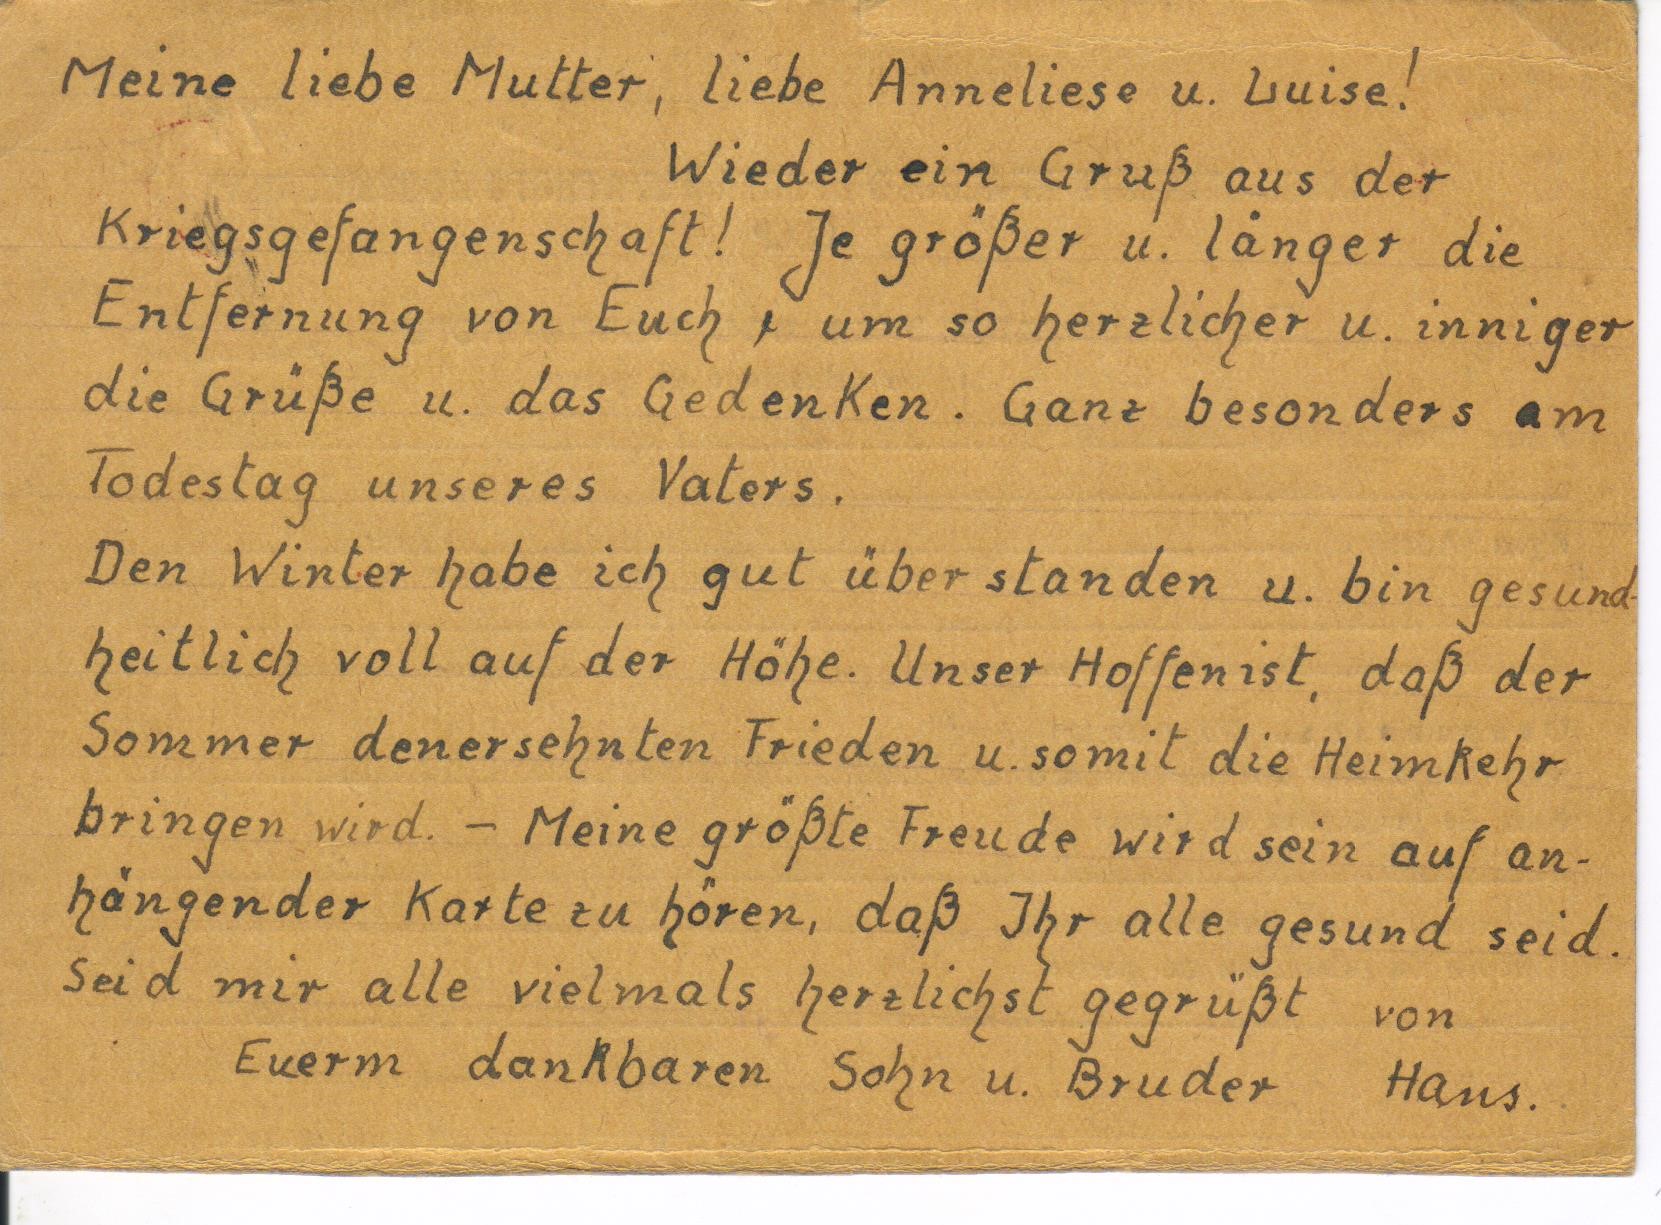 Meine liebe Mutter, liebe Anneliese u. Luise!
Wieder ein Gruß aus der
Kriegsgefangenschaft! Je größer u. länger die
Entfernung von Euch, um so herzlicher u. inniger
die Grüße u. das Gedenken. Ganz besonders am
Todestag unseres Vaters.
Den Winter habe ich gut überstanden u. bin gesund-
heitlich voll auf der Höhe. Unser Hoffen ist, daß der
Sommer den ersehnten Frieden u. somit die Heimkehr
bringen wird. – Meine größte Freude wird sein auf an-
hängender Karte zu hören, daß Ihr alle gesund seid.
Seid mir alle vielmals herzlichst gegrüßt von
Euerm dankbaren Sohn u. Bruder Hans.